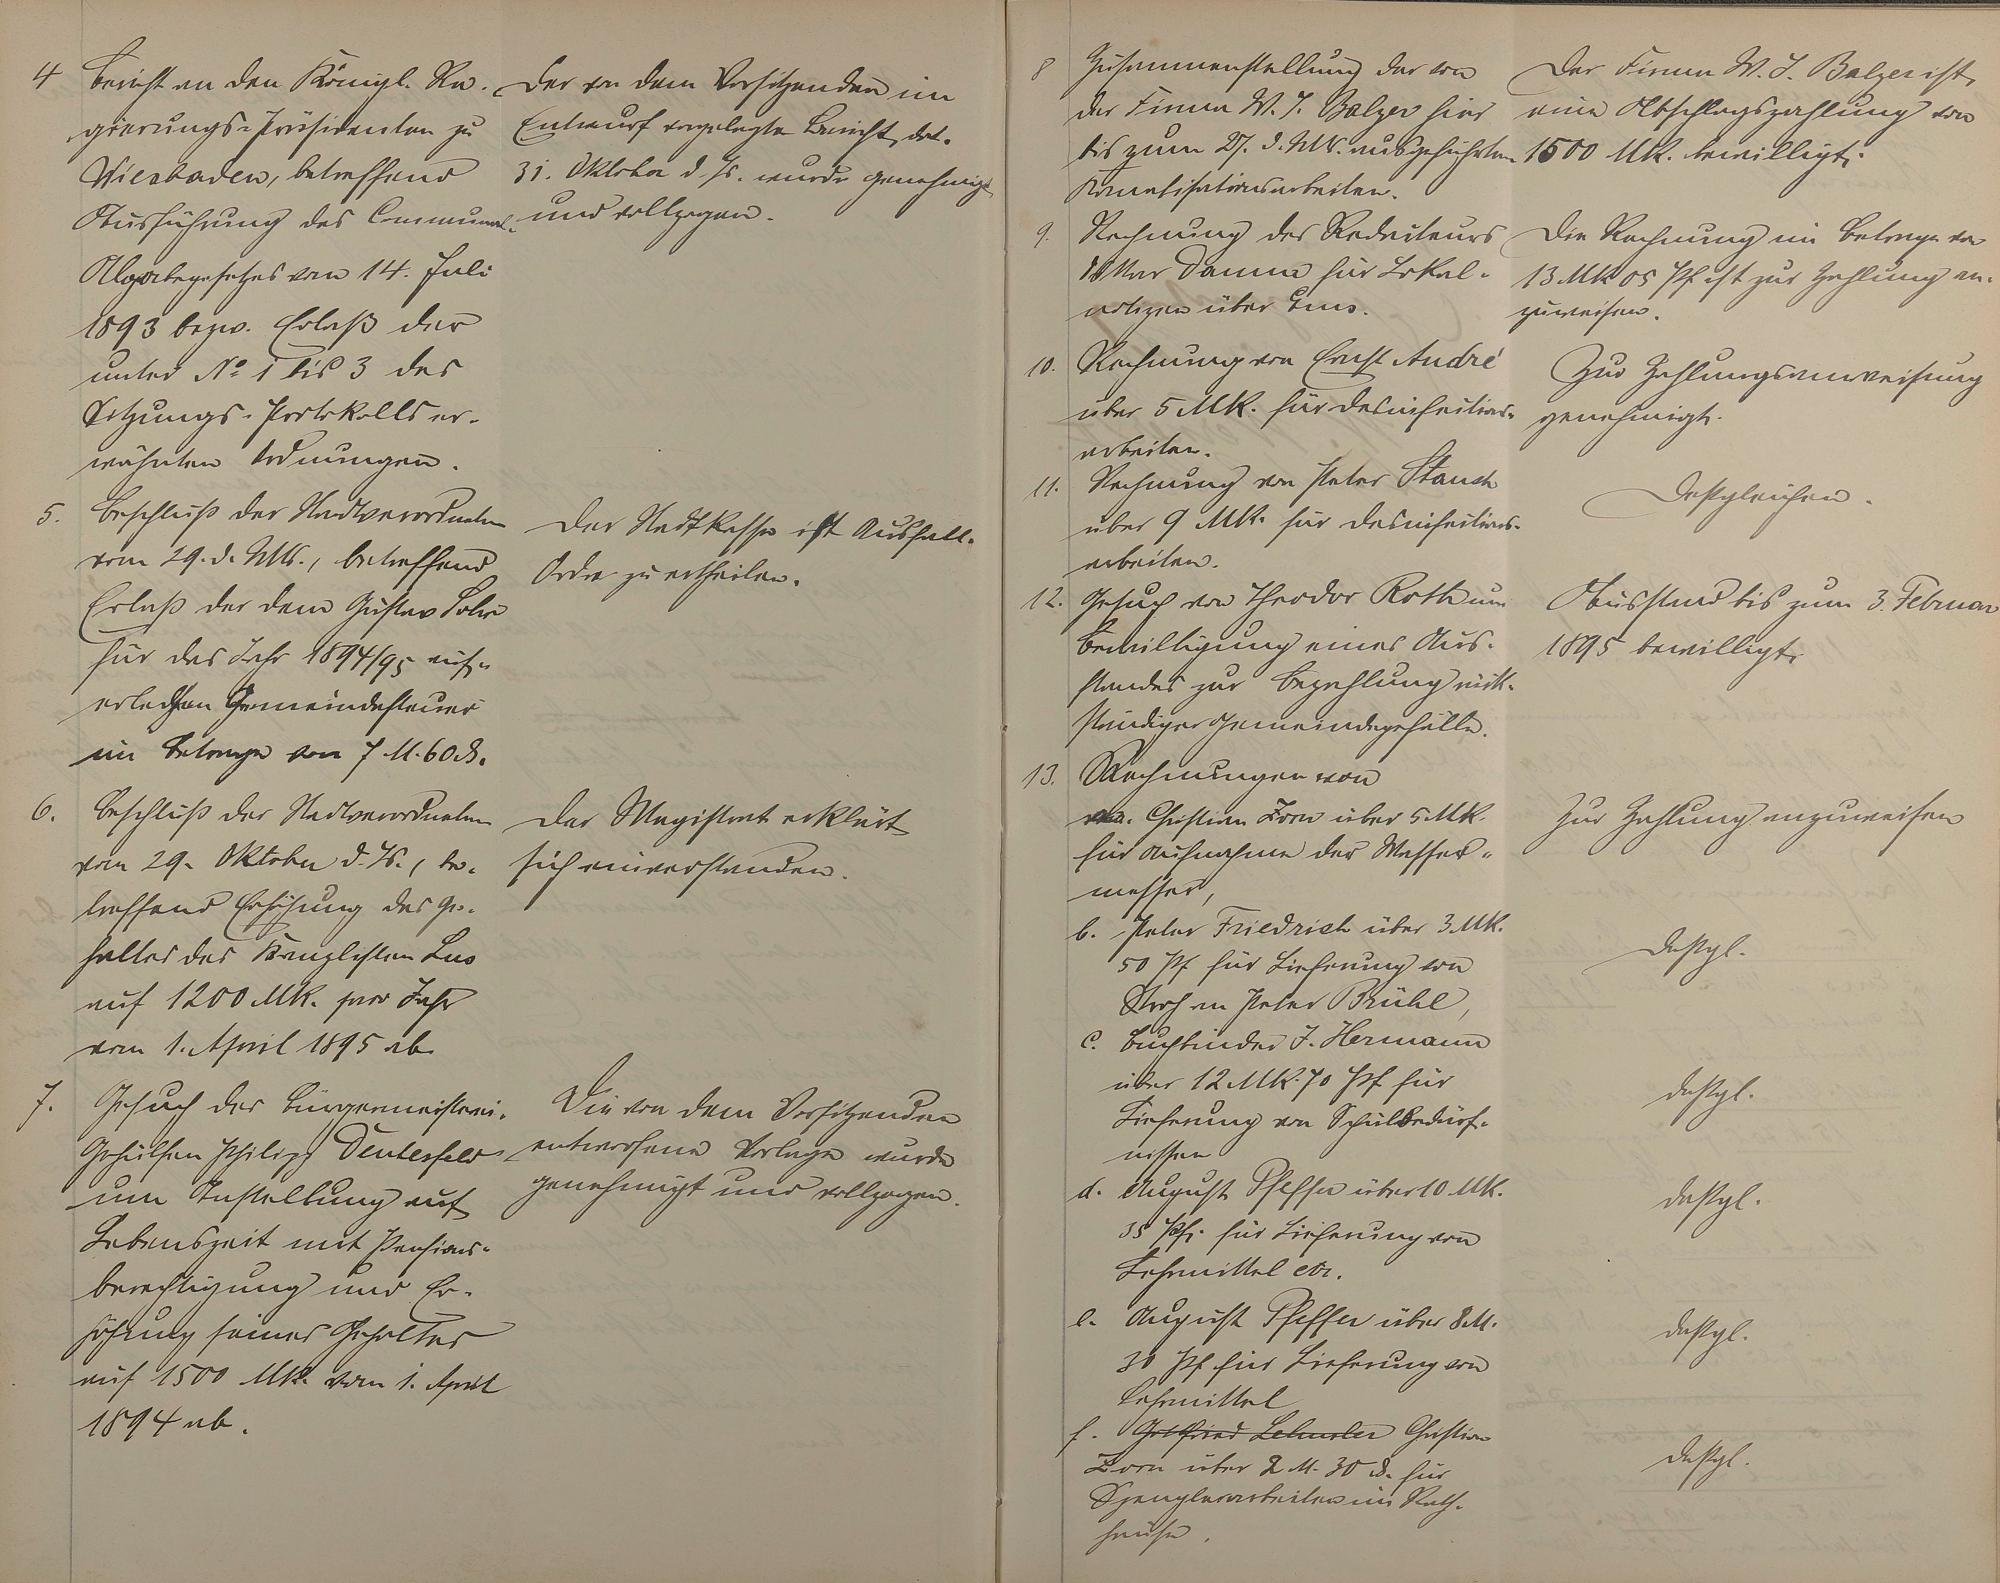 4 Bericht an den Königl. Re-
gierungs-Präsidenten zu
Wiesbaden, betreffend
Ausführung des Communal-
Abgabegesetzes vom 14. Juli
1893 bezw. Erlaß der
unter No 1 bis 3 des
Sitzungs-Protokolls er-
wähnten Ordnungen.
Der von dem Vorsitzenden im
Entwurf vorgelegte Bericht, dat.
31. Oktober d. Js. wurde genehmigt
und vollzogen.
5. Beschluß der Stadtverordneten
vom 29. d. Mts., betreffend
Erlaß der dem Gustav
für das Jahr 1894/95 auf-
erlegten Gemeindesteuer
im Betrage von 7 M. 60 ₰.
Der Stadtkasse ist Ausfall-
Ordre zu ertheilen.
6. Beschluß der Stadtverordneten
vom 29. Oktober d. Js., be-
treffend Erhöhung des Ge-
haltes des Kanzlisten
auf 1200 Mk. pro Jahr
vom 1. April 1895 ab.
Der Magistrat erklärt
sich einverstanden.
7. Gesuch des Bürgermeisterei-
Gehülfen Philipp Deutesfeld
um Anstellung auf
Lebenszeit mit Pensions-
berechtigung und Er-
höhung seines Gehaltes
auf 1500 Mk. vom 1. April
1894 ab.
Die von dem Vorsitzenden
entworfene Vorlage wurde
genehmigt und vollzogen.
8 Zusammenstellung der von
der Firma W. J. Balzer hier
bis zum 27. d. Mts. ausgeführten
Kanalisationsarbeiten.
Der Firma W. J. Balzer ist
eine Abschlagszahlung von
1500 Mk. bewilligt.
9. Rechnung des Redacteurs
Max Damm für Lokal-
notizen über Ems.
Die Rechnung im Betrage von
13 Mk 05 Pf ist zur Zahlung an-
zuweisen.
10. Rechnung von Ernst André
über 5 Mk. für Desinfections-
arbeiten.
Zur Zahlungsanweisung
genehmigt.
11. Rechnung von Peter Stauch
über 9 Mk. für Desinfections-
arbeiten.
Desgleichen.
12. Gesuch von Theodor Roth um
Bewilligung eines Aus-
standes zur Bezahlung rück-
ständiger Gemeindegefälle.
Ausstand bis zum 3. Februar
1895 bewilligt.
13. Rechnungen von
a. Christian Zorn über 5 Mk.
für Aufnahme der Wasser-
messer,
Zur Zahlung anzuweisen
b. Peter Friedrich über 3 Mk.
50 Pf für Lieferung von
Stroh an Peter Brühl,
desgl.
c. Buchbinder J. Hermann
über 12 Mk. 70 Pf für
Lieferung von Schulbedürf-
nissen
desgl.
d. August Pfeffer über 10 Mk.
35 Pf. für Lieferung von
Lehrmittel etc.
desgl.
e. August Pfeffer über 8 M.
30 Pf für Lieferung von
Lehrmittel
desgl.
f. Gottfried Christian
Zorn über 2 M. 30 ₰. für
Spenglerarbeiten im Rath-
hause.
desgl.